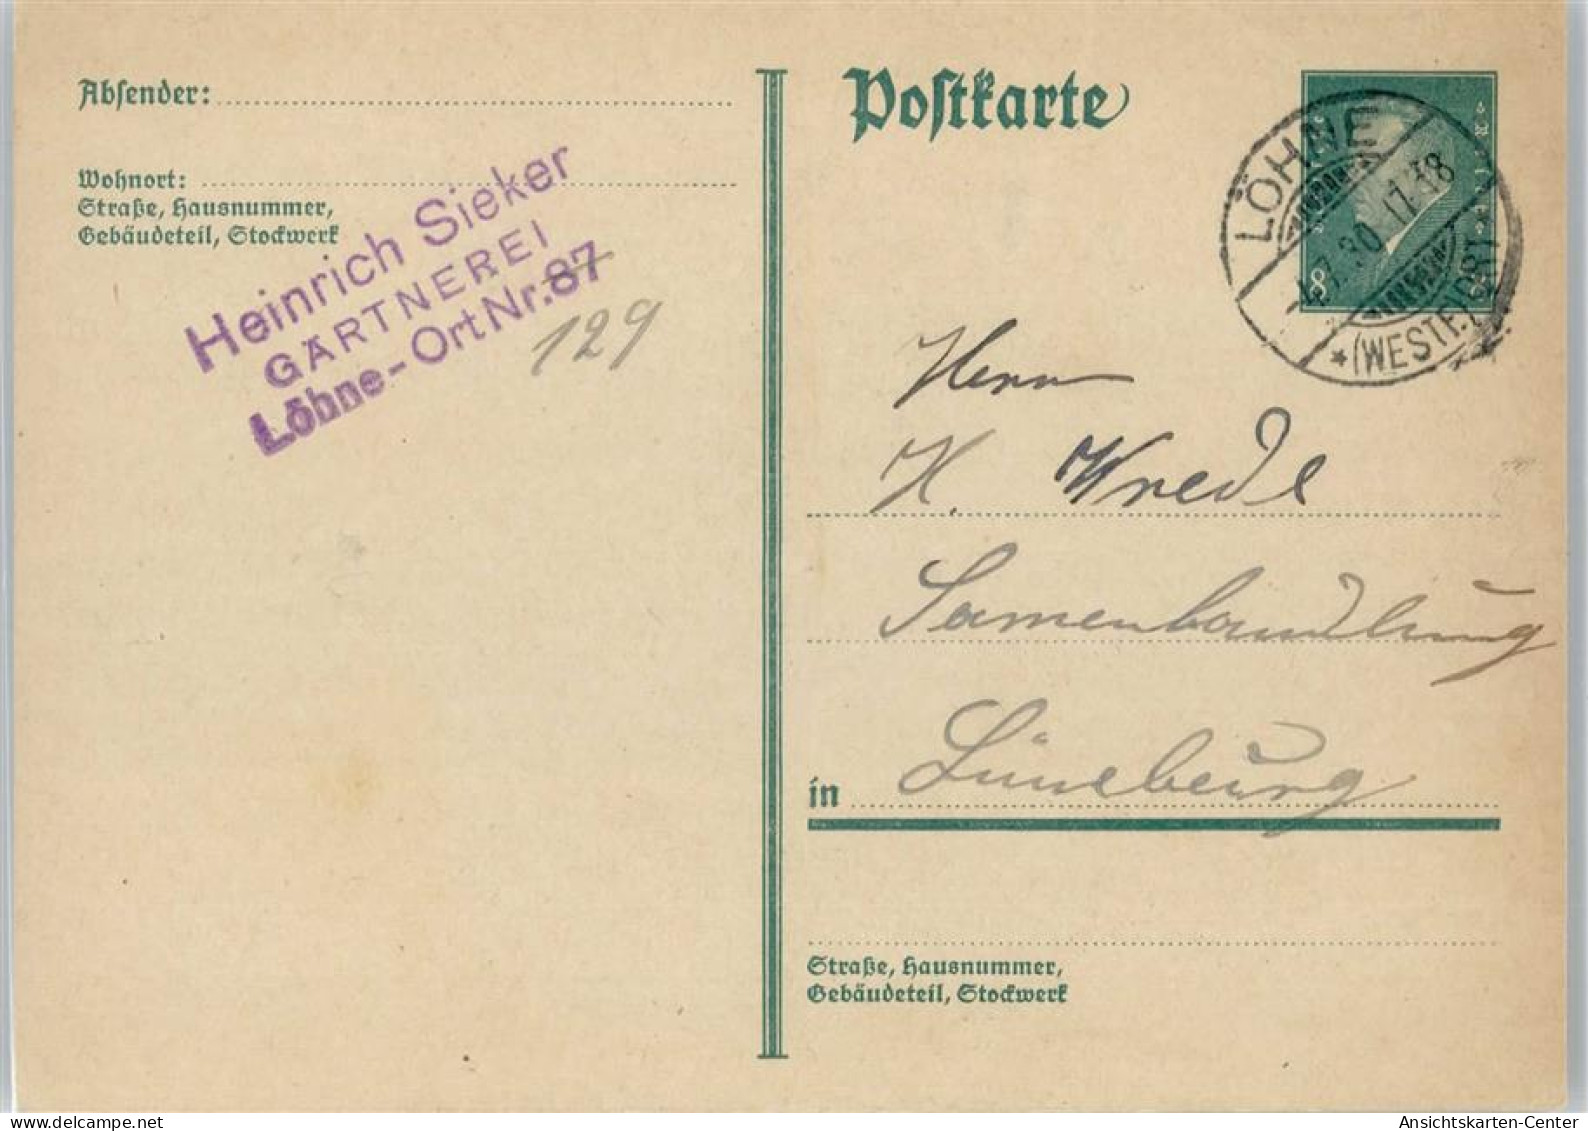 Absender:
Wohnort:
Straße, Hausnummer,
Gebäudeteil, Stockwerk
Heinrich Sieker
GÄRTNEREI
Löhne-Ort Nr. 87
129
Postkarte
LÖHNE
17.18
(WESTF.) ORT
8
Herrn
H. Wrede
Samenhandlung
in Lüneburg
Straße, Hausnummer,
Gebäudeteil, Stockwerk
Ansichtskarten-Center